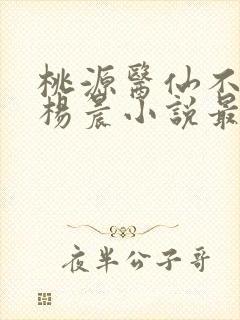 桃源醫仙不
楊晨小說最
夜半公子哥